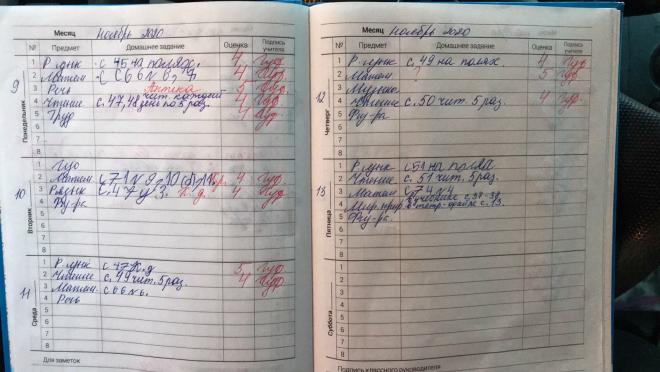 Месяц ноябрь 2020
№ Предмет Домашнее задание Оценка Подпись учителя
9 Понедельник
1 Р. язык с 45 на полях. 4
2 Матем с 66 4
3 Речь Аптека
4 Чтение с. 47, 48 чит. каждый день по 5 раз. 4
5 Труд 4
6
7
8
10 Вторник
1
2 Матем 4
3 Р. язык с. 47 у 3. к. д 4
4 Физ-ра
5
6
7
8
11 Среда
1 Р. язык с 47 К. д 5
2 Чтение с. 49 чит. 5 раз. 4
3 Матем с 66 № 6.
4 Речь
5
6
7
8
Для заметок
Месяц ноябрь 2020
№ Предмет Домашнее задание Оценка Подпись учителя
12 Четверг
1 Р. язык с. 49 на полях 4
2 Матем 5
3 Музыка
4 Чтение с. 50 чит. 5 раз. 4
5 Физ-ра
6
7
8
13 Пятница
1 Р. язык с 51 на полях
2 Чтение с. 51 чит. 5 раз.
3 Матем с 74 № 4
4 Мир. прир учебнике с. 37-38
с. 13.
5 Физ-ра.
6
7
8
Суббота
1
2
3
4
5
6
7
8
Подпись классного руководителя